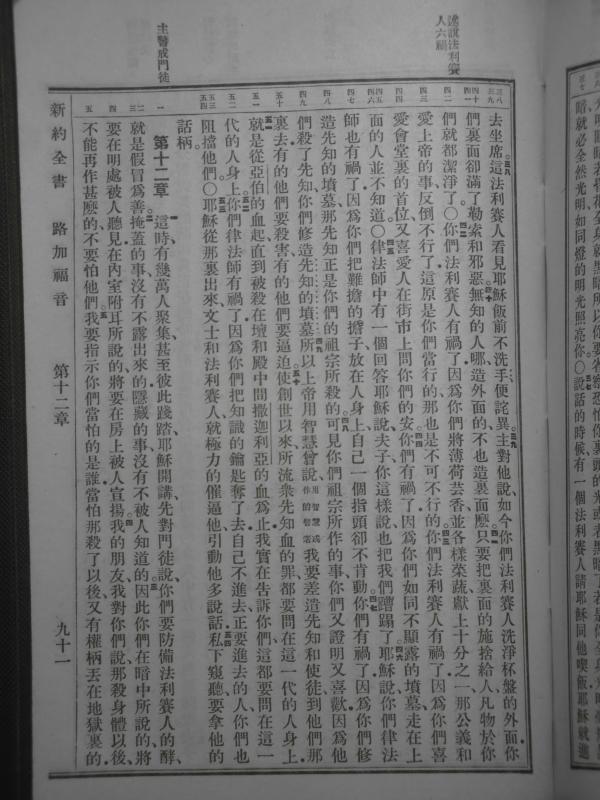 暗就必全然光明如同燈的明光照亮你〇說話的時候有一個法利賽人請耶穌同他喫飯耶穌就進
述說法利賽
人六禍
主警戒門徒
去坐席這法利賽人看見耶穌飯前不洗手便詫異主對他說如今你們法利賽人洗淨杯盤的外面你
們裏面卻滿了勒索和邪惡無知的人哪造外面的不也造裏面麼只要把裏面的施捨給人凡物於你
們就都潔淨了〇你們法利賽人有禍了因爲你們將薄荷芸香並各樣菜蔬獻上十分之一那公義和
愛上帝的事反倒不行了這原是你們當行的那也是不可不行的你們法利賽人有禍了因爲你們喜
愛會堂裏的首位又喜愛人在街市上問你們的安你們有禍了因爲你們如同不顯露的墳墓走在上
面的人並不知道〇律法師中有一個回答耶穌說夫子你這樣說也把我們蹧蹋了耶穌說你們律法
師也有禍了因爲你們把難擔的擔子放在人身上自己一個指頭卻不肯動你們有禍了因爲你們修
造先知的墳墓那先知正是你們的祖宗所殺的可見你們祖宗所作的事你們又證明又喜歡因爲他
們殺了先知你們修造先知的墳墓所以上帝用智慧曾說用智慧或作的智者我要差遣先知和使徒到他們那
裏去有的他們要殺害有的他們要逼迫使創世以來所流衆先知血的罪都要問在這一代的人身上
就是從亞伯的血起直到被殺在壇和殿中間撒迦利亞的血爲止我實在告訴你們這都要問在這一
代的人身上你們律法師有禍了因爲你們把知識的鑰匙奪了去自己不進去正要進去的人你們也
阻擋他們〇耶穌從那裏出來文士和法利賽人就極力的催逼他引動他多說話私下窺聽要拿他的
話柄
第十二章 這時有幾萬人聚集甚至彼此踐踏耶穌開講先對門徒說你們要防備法利賽人的酵
就是假冒爲善掩蓋的事沒有不露出來的隱藏的事沒有不被人知道的因此你們在暗中所說的將
要在明處被人聽見在內室附耳所說的將要在房上被人宣揚我的朋友我對你們說那殺身體以後
不能再作甚麼的不要怕他們我要指示你們當怕的是誰當怕那殺了以後又有權柄丟在地獄裏的
新約全書 路加福音 第十二章 九十一